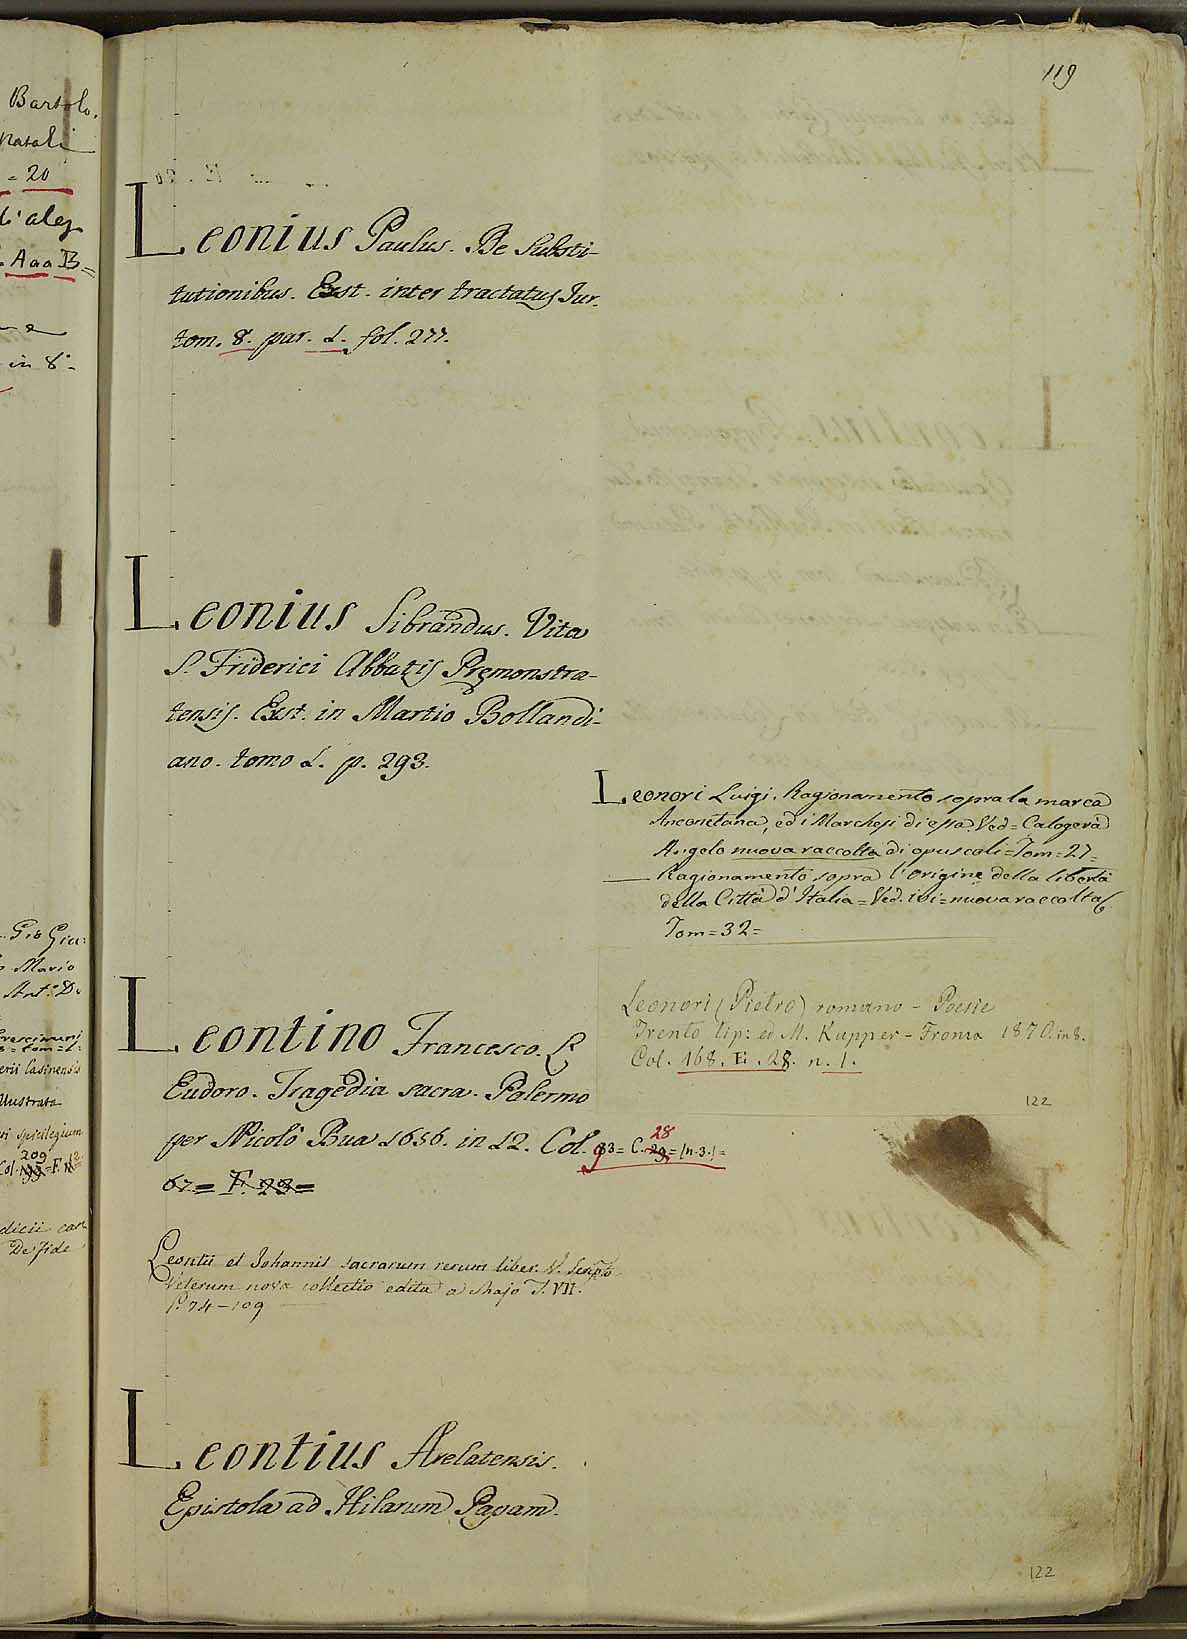 Bartolo.
Natali
= 20
d'aleg.
= Aaa B =
in 8.°
Gio Giu:
Mario
Ant.° D.
Crescimani
= tom = 2 :
erii Casinensis
llustrata
ri spicilegium
209
Col. 199 = F. n 2
dicii cart
De fide
119
Leonius Paulus. De Substi-
tutionibus. Exst. inter tractatus Jur.
tom. 8. par. 1. fol. 277.
Leonius Sibrandus. Vita
S. Friderici Abbatis Pręmonstra-
tensis. Exst. in Martio Bollandi-
ano. tomo 1. p. 293.
Leonori Luigi. Ragionamento sopra la marca
Anconetana, ed i Marchesi di essa. Ved = Calogerà
Angelo nuova raccolta di opuscoli = Tom = 27 =
— Ragionamento sopra l'origine della libertà
della Città d'Italia = Ved. ivi = nuova raccolta
Tom = 32 =
Leonori (Pietro) romano - Poesie
Trento tip: ed M. Kupper - Fronza 1870. in 8.
Col. 168. E. 28. n. 1.
122
Leontino Francesco. L'
Eudoro. Tragedia sacra. Palermo
per Nicolò Bua 1656. in 12. Col. 93 = C. 29 = n. 3. =
28
67 = F. 29 =
Leontii et Johannis sacrarum rerum liber. V. Scripto
Veterum nova collectio edita a Majo T. VII.
P. 74 - 109
Leontius Arelatensis.
Epistola ad Hilarum Papam.
122